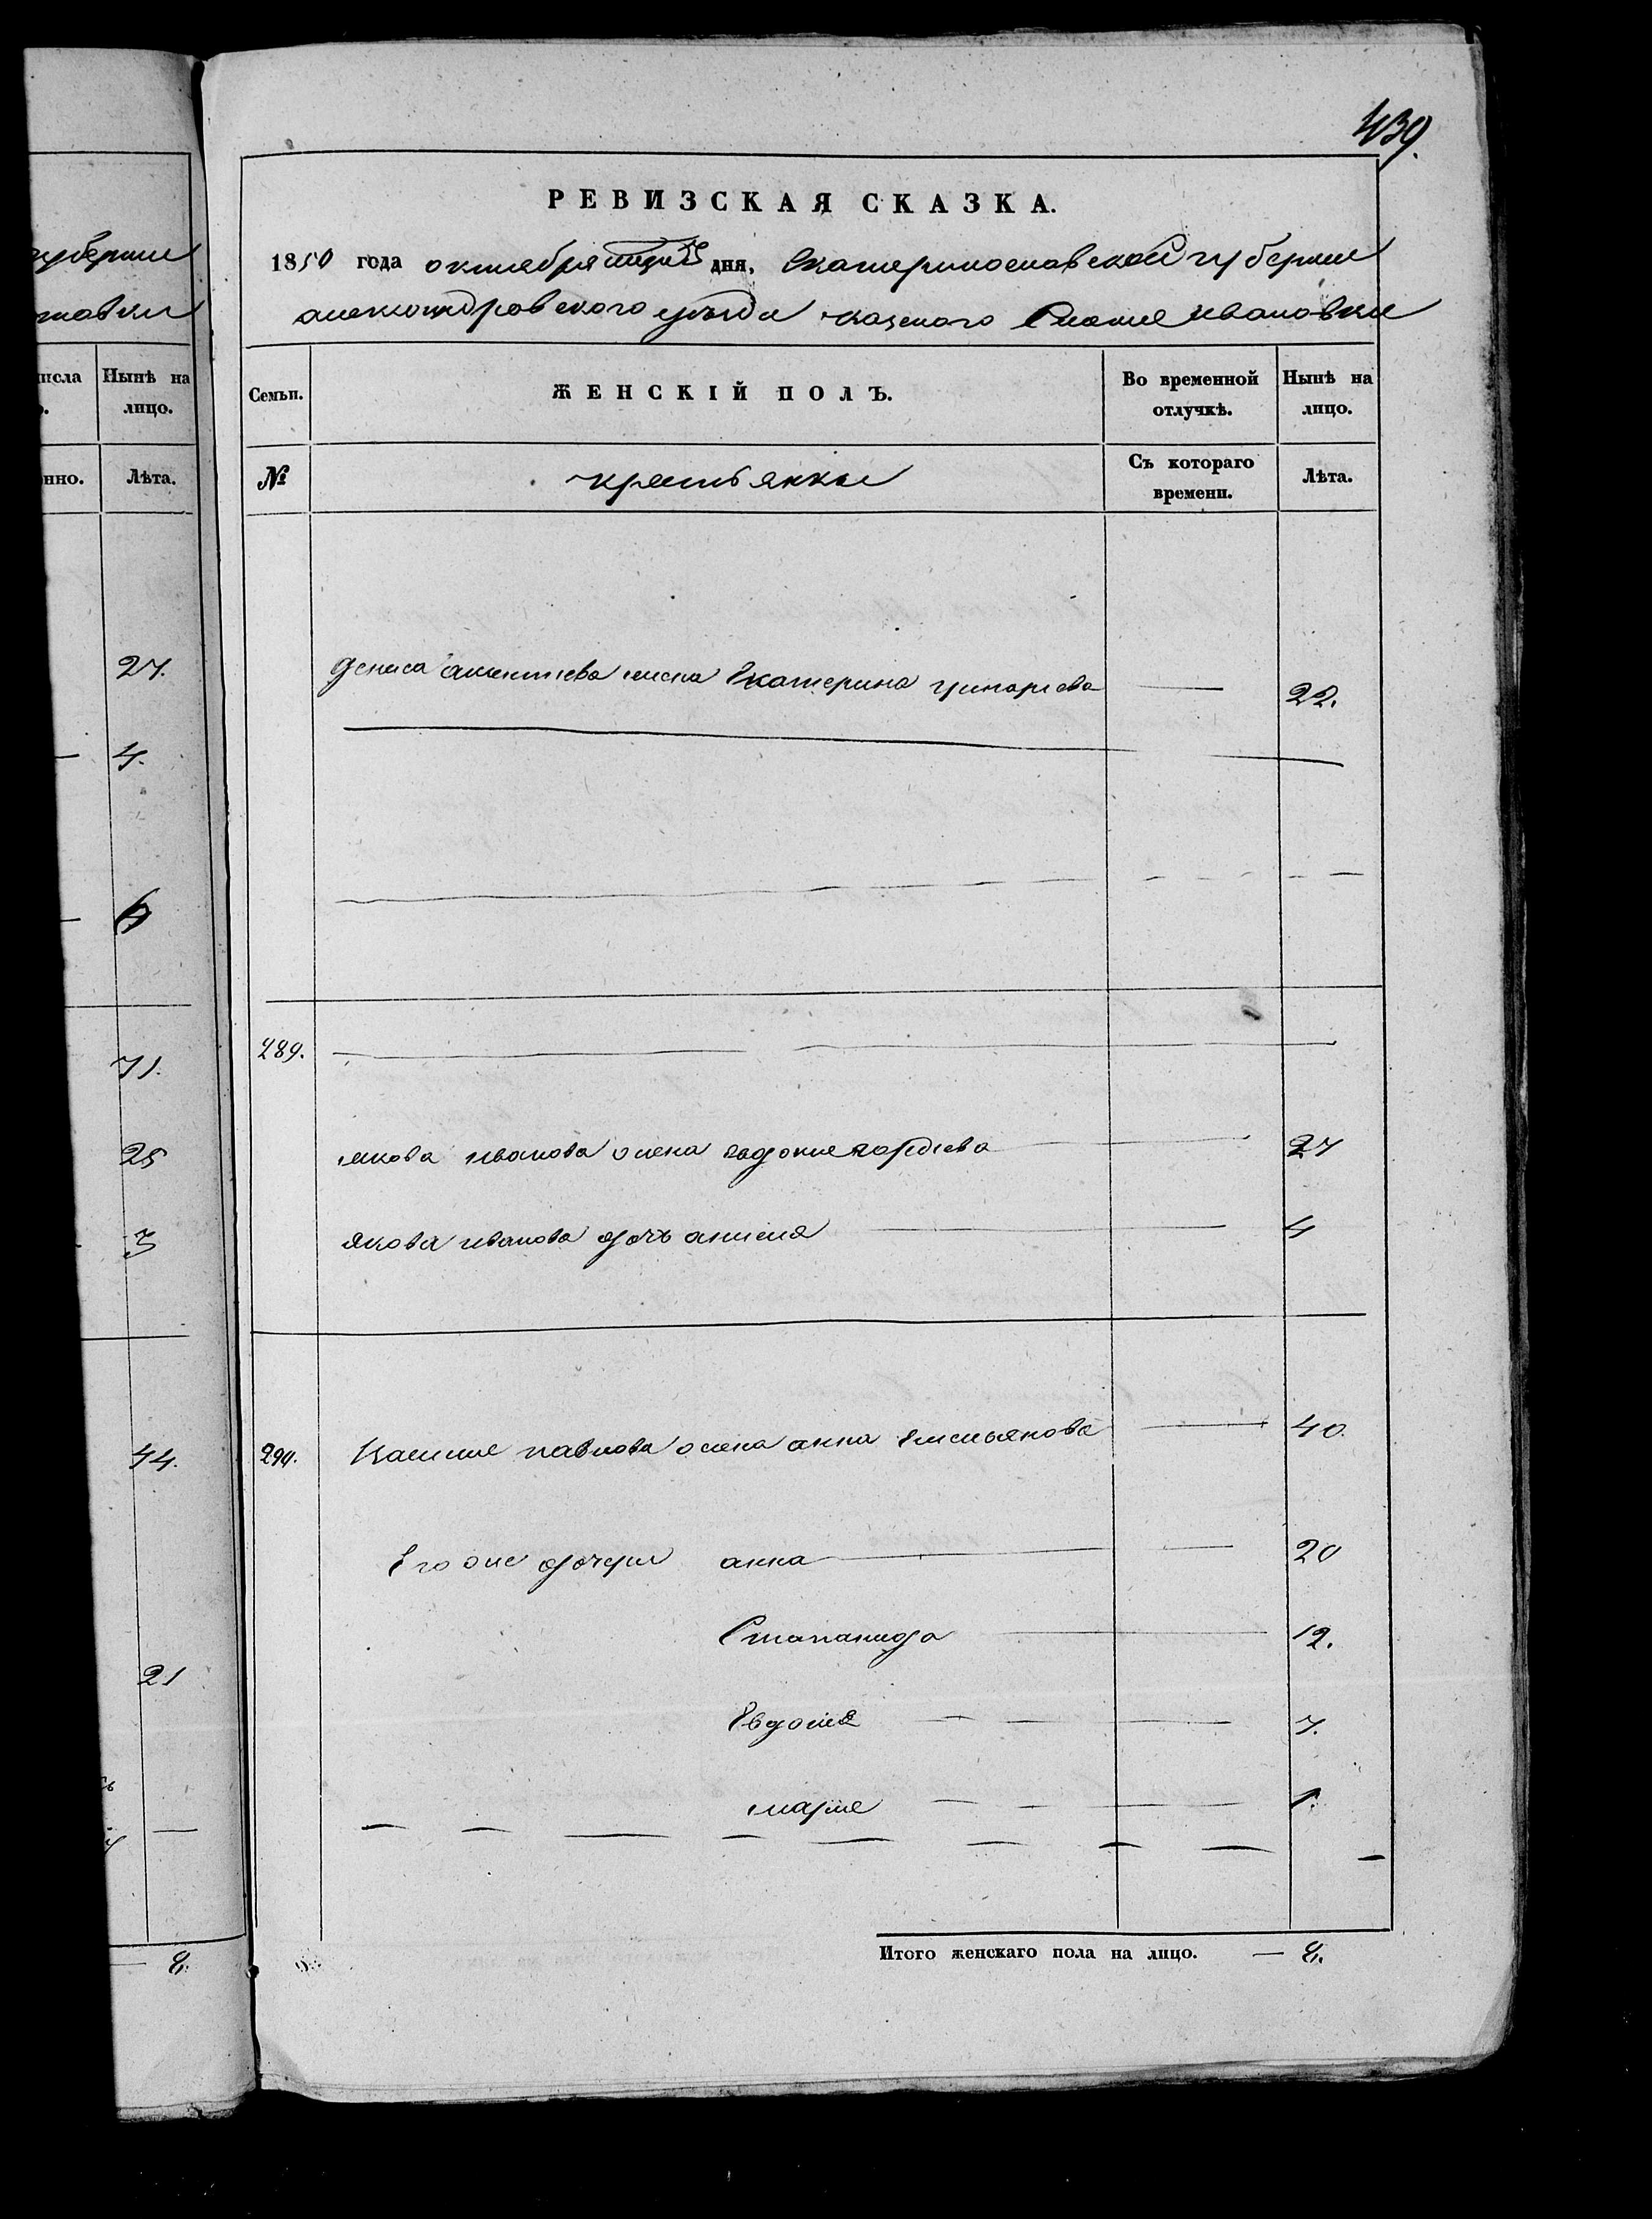 439.
РЕВИЗСКАЯ СКАЗКА.
1850 года октября дня, Екатеринославской губернии
александровского уезда казеного Ивановки
Семьи.
ЖЕНСКІЙ ПОЛЪ.
Во временной отлучкѣ.
Нынѣ на лицо.
№
крестьянки
Съ котораго времени.
Лѣта.
Дениса жена Екатерина григориева — 22.
289.
Якова иванова жена евдокия гордиева — 27
якова иванова дочь анисия — 4
290. павлова жена анна емельянова — 40.
Его же дочери анна — 20
Стапанида — 12.
Евдокия — 7.
мария — 1.
Итого женскаго пола на лицо. — 8.
губернии
исла
Нынѣ на лицо.
нно.
Лѣта.
27.
4.
71.
25
3
44.
21
— 8.